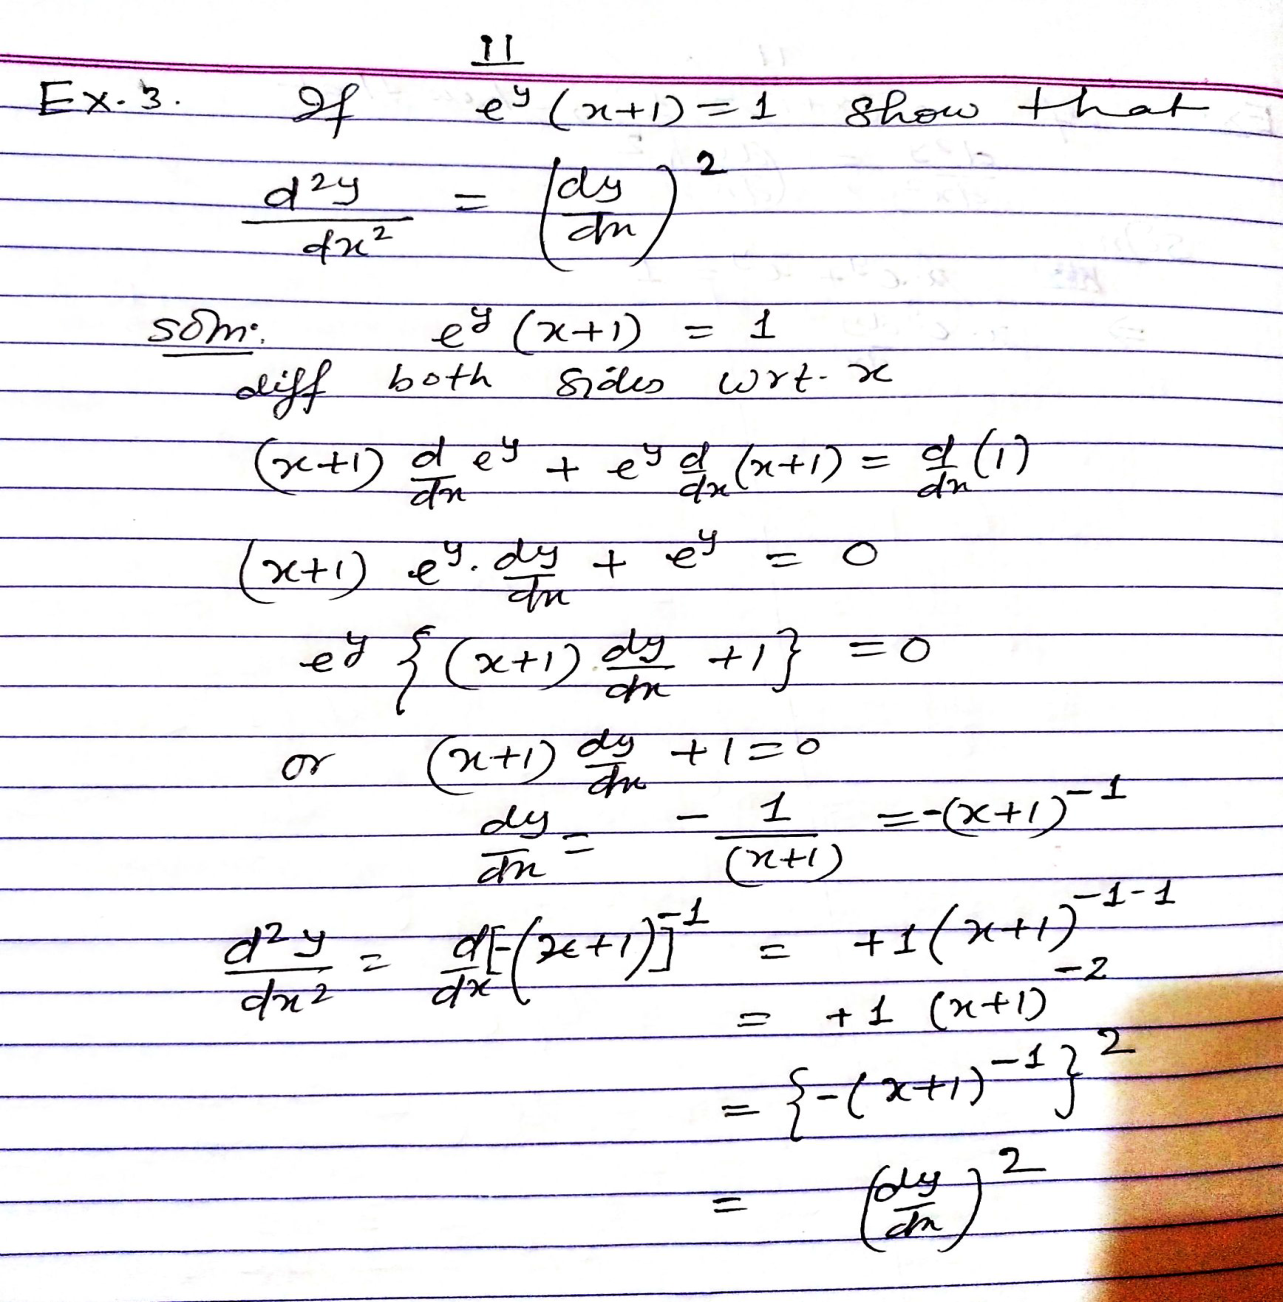 11
Ex. 3. If e^y (x+1) = 1 show that
d²y/dx² = (dy/dx)²
soln: e^y (x+1) = 1
diff both sides wrt. x
(x+1) d/dx e^y + e^y d/dx (x+1) = d/dx (1)
(x+1) e^y . dy/dx + e^y = 0
e^y {(x+1) . dy/dx +1} = 0
or (x+1) dy/dx + 1 = 0
dy/dx = - 1/(x+1) = -(x+1)^-1
d²y/dx² = d/dx [-(x+1)]^-1 = +1 (x+1)^-1-1
= +1 (x+1)^-2
= {-(x+1)^-1}²
= (dy/dx)²